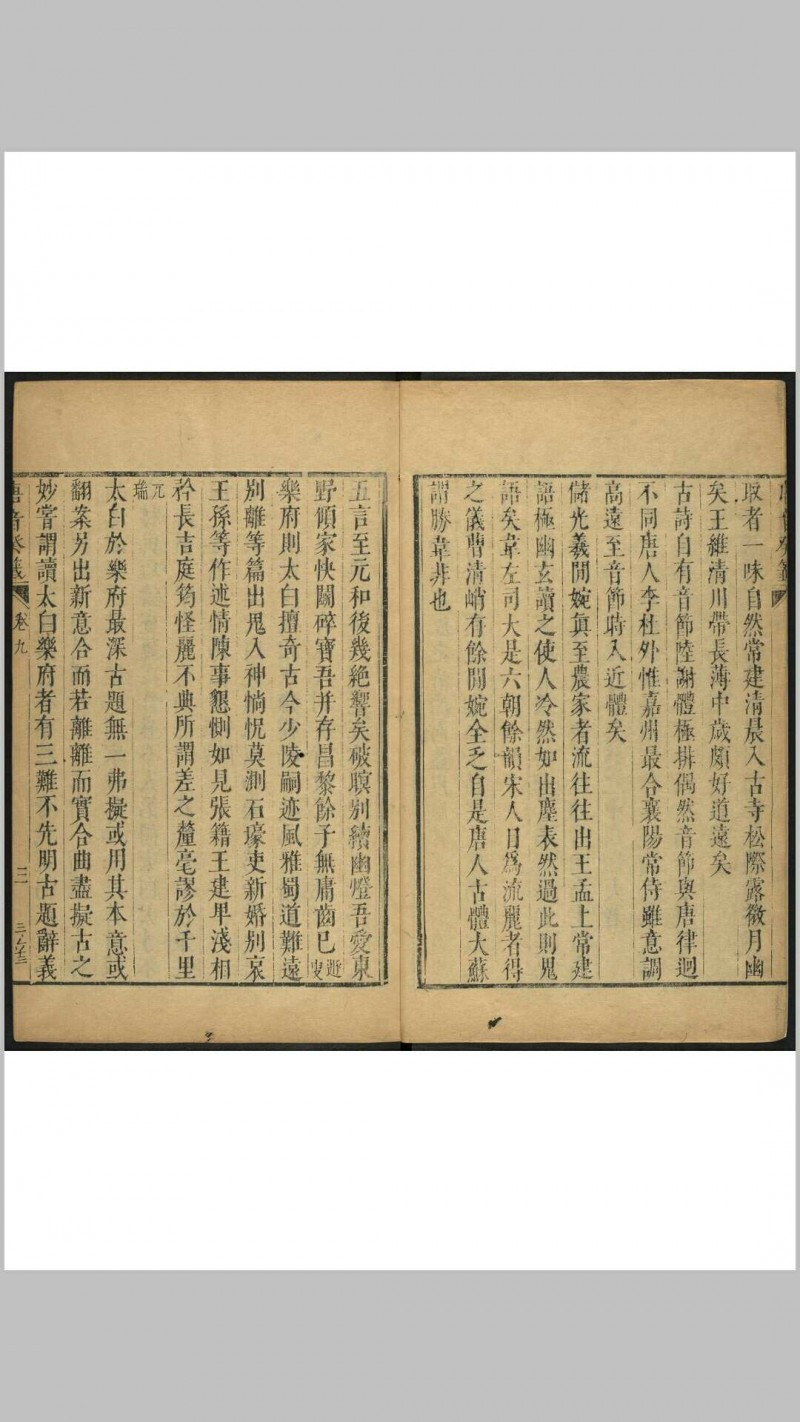 取者一味自然常建清晨入古寺松際露微月幽
矣王維清川帶長薄中歲頗好道遠矣
古詩自有音節陸謝體極排偶然音節與唐律迥
不同唐人李杜外惟嘉州最合襄陽常侍雖意調
高遠至音節時入近體矣
儲光羲閒婉真至農家者流往往出王孟上常建
語極幽玄讀之使人冷然如出塵表然過此則鬼
語矣韋左司大是六朝餘韻宋人目爲流麗者得
之儀曹清峭有餘閒婉全乏自是唐人古體大蘇
謂勝韋非也
五言至元和後幾絕響矣破瞑別續幽燈吾愛東
野傾家快鬭碎寶吾并存昌黎餘子無庸齒已遯叟
樂府則太白擅奇古今少陵嗣迹風雅蜀道難遠
別離等篇出鬼入神惝怳莫測石壕吏新婚別哀
王孫等作述情陳事懇惻如見張籍王建卑淺相
矜長吉庭筠怪麗不典所謂差之釐毫謬於千里
元瑞
太白於樂府最深古題無一弗擬或用其本意或
翻案另出新意合而若離離而實合曲盡擬古之
妙嘗謂讀太白樂府者有三難不先明古題辭義
唐音癸籤 卷九 三